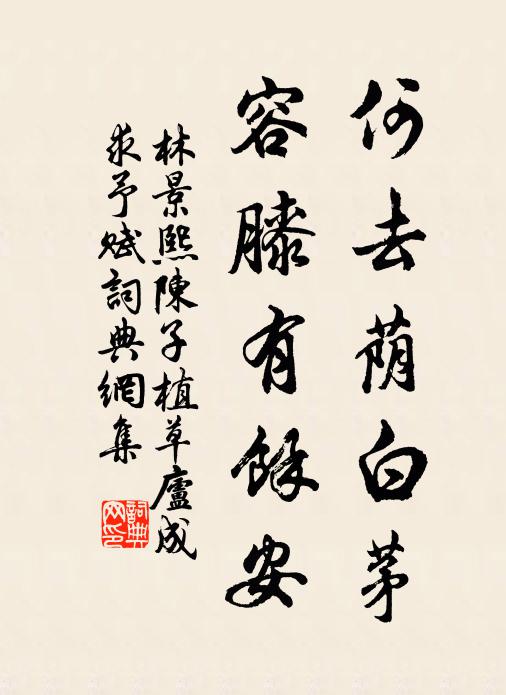 何去荫白茅
容膝有餘安
林景熙陳子植草廬成
求予赋詞典網集
詞典网印